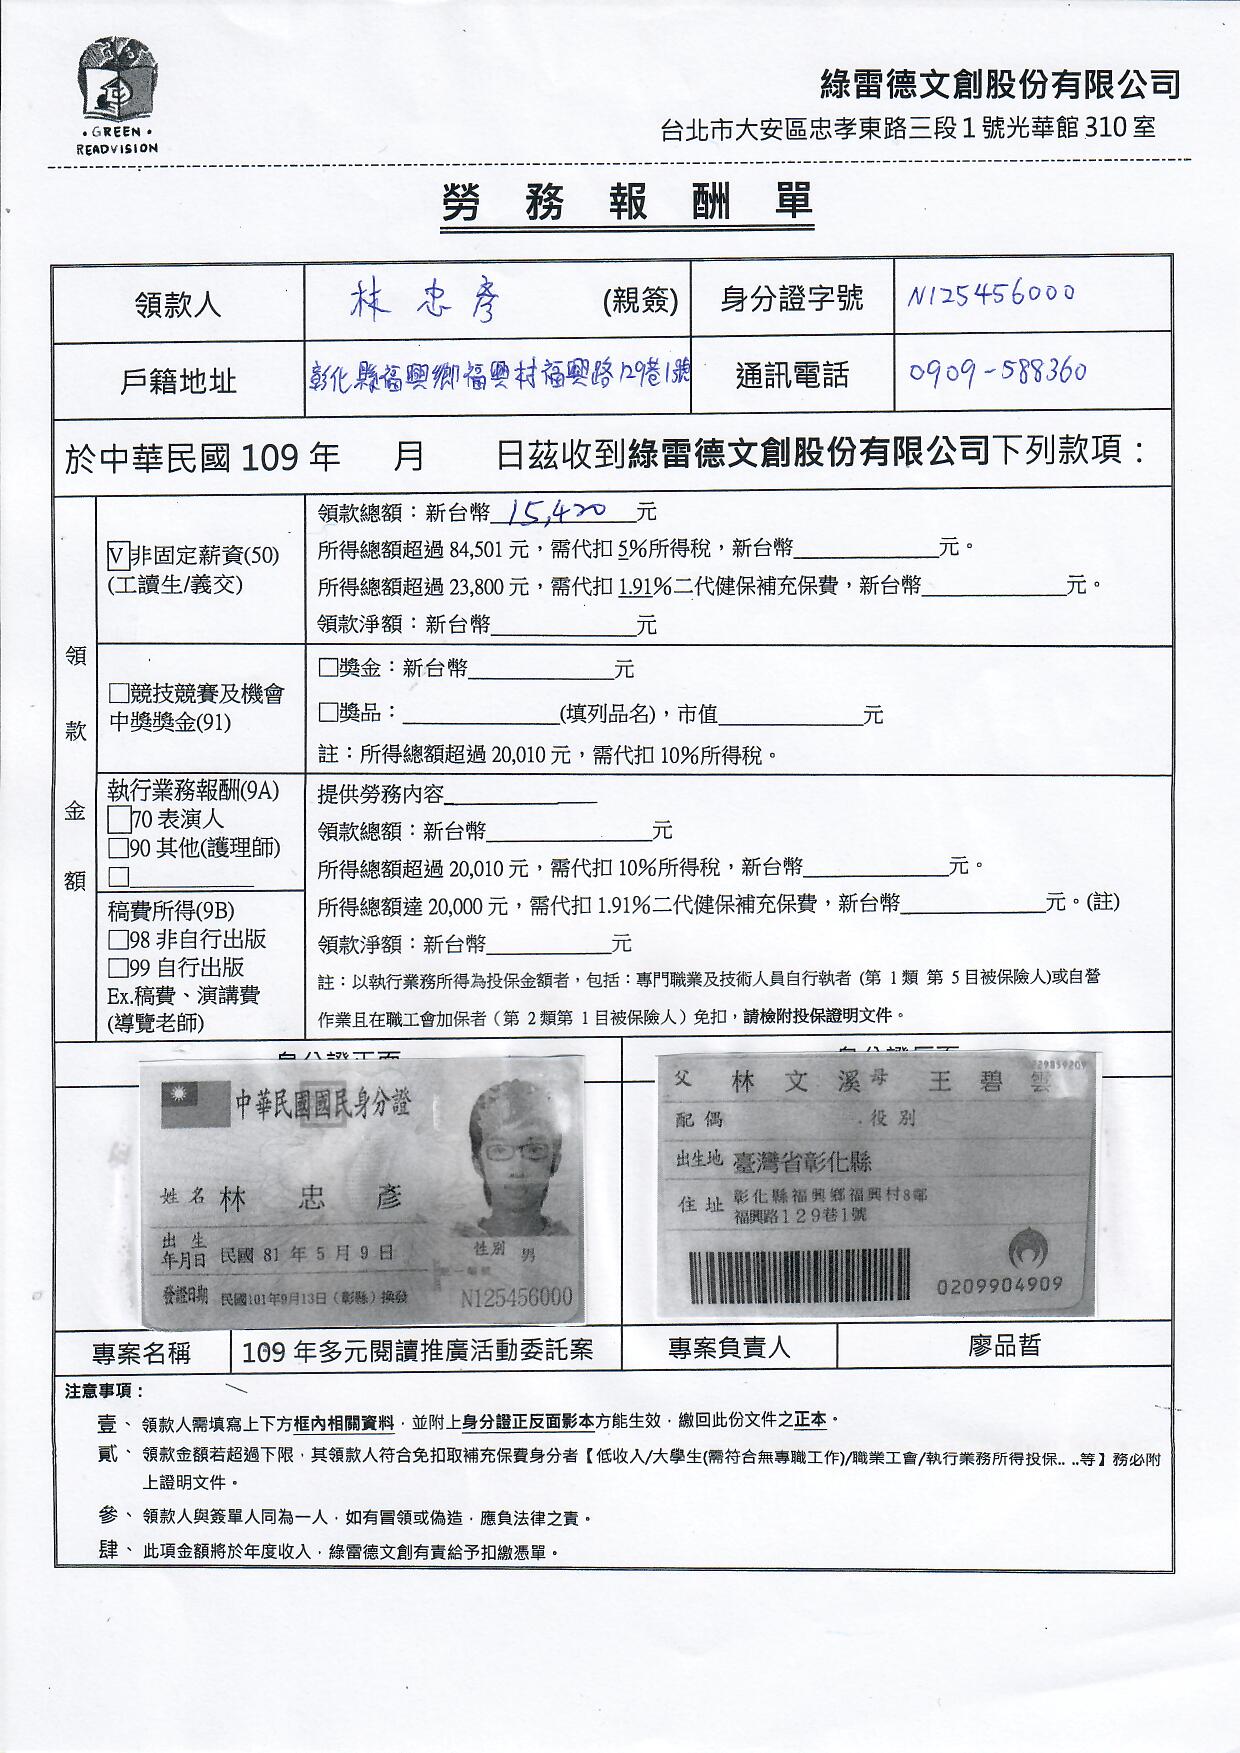 ・GREEN・
READVISION
綠雷德文創股份有限公司
台北市大安區忠孝東路三段1號光華館310室
勞務報酬單
領款人 林忠彥 (親簽) 身分證字號 N125456000
戶籍地址 彰化縣福興鄉福興村福興路129巷1號 通訊電話 0909-588360
於中華民國109年 月 日茲收到綠雷德文創股份有限公司下列款項：
領款金額
V非固定薪資(50)
(工讀生/義交)
領款總額：新台幣15,420元
所得總額超過84,501元，需代扣5%所得稅，新台幣____元。
所得總額超過23,800元，需代扣1.91%二代健保補充保費，新台幣____元。
領款淨額：新台幣____元
□競技競賽及機會
中獎獎金(91)
□獎金：新台幣____元
□獎品：____(填列品名)，市值____元
註：所得總額超過20,010元，需代扣10%所得稅。
執行業務報酬(9A)
□70表演人
□90其他(護理師)
□____
稿費所得(9B)
□98非自行出版
□99自行出版
Ex.稿費、演講費
(導覽老師)
提供勞務內容____
領款總額：新台幣____元
所得總額超過20,010元，需代扣10%所得稅，新台幣____元。
所得總額達20,000元，需代扣1.91%二代健保補充保費，新台幣____元。(註)
領款淨額：新台幣____元
註：以執行業務所得為投保金額者，包括：專門職業及技術人員自行執者(第1類 第5目被保險人)或自營
作業且在職工會加保者(第2類第1目被保險人)免扣，請檢附投保證明文件。
身分證正面 身分證反面
中華民國國民身分證
姓名 林忠彥
出生
年月日 民國81年5月9日
性別 男
發證日期 民國101年9月13日(彰縣)換發
N125456000
父 林文溪 母 王碧雲
配偶 役別
出生地 臺灣省彰化縣
住址 彰化縣福興鄉福興村8鄰
福興路129巷1號
0209904909
專案名稱 109年多元閱讀推廣活動委託案 專案負責人 廖品晢
注意事項：
壹、領款人需填寫上下方框內相關資料，並附上身分證正反面影本方能生效，繳回此份文件之正本。
貳、領款金額若超過下限，其領款人符合免扣取補充保費身分者【低收入/大學生(需符合無專職工作)/職業工會/執行業務所得投保....等】務必附
上證明文件。
參、領款人與簽單人同為一人，如有冒領或偽造，應負法律之責。
肆、此項金額將於年度收入，綠雷德文創有責給予扣繳憑單。